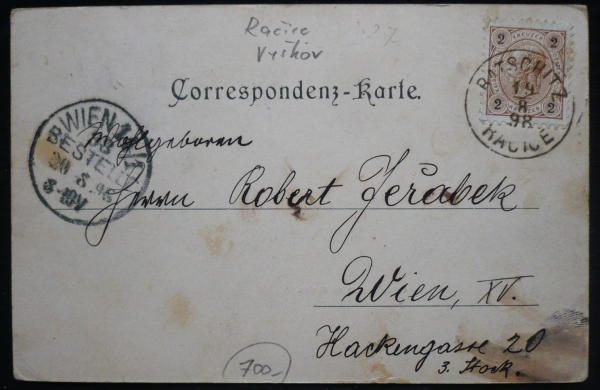 Račice
Vyškov
Correspondenz-Karte.
2 2
2 2
RATSCHITZ
19
8
98
RAČICE
WIEN
BESTELLT
20 8 98
Wohlgeboren
Herrn Robert Jeřabek
Wien, XV.
Hackengasse 20
3. Stock.
700,-